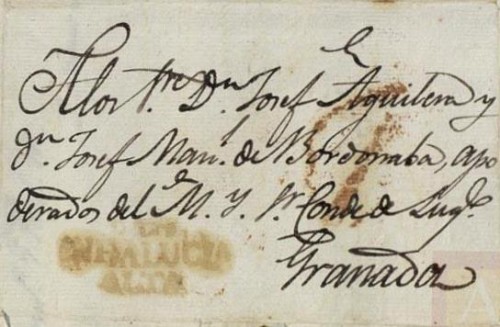 A los S.res D.n Josef Aguilera y
d.n Josef Man.l de Bordonaba, apo
derados del M. Y. S.r Conde de Luq.e
Granada
ANDALUCIA
ALTA